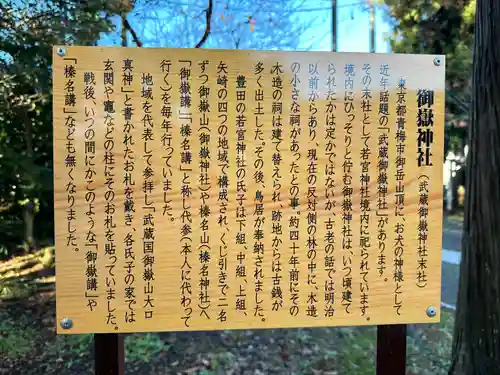 御嶽神社(武蔵御嶽神社末社)
東京都青梅市御岳山頂に、お犬の神様として
近年話題の「武蔵御嶽神社」があります。
その末社として若宮神社境内に祀られています。
境内にひっそりと佇む御嶽神社は、いつ頃建て
られたかは定かではないが、古老の話では明治
以前からあり、現在の反対側の林の中に、木造
の小さな祠があったとの事。約四十年前にその
木造の祠は建て替えられ、跡地からは古銭が
多く出土した。その後、鳥居が奉納されました。
豊田の若宮神社の氏子は下組、中組、上組、
矢崎の四つの地域で構成され、くじ引きで二名
ずつ御嶽山(御嶽神社)や榛名山(榛名神社)へ
「御嶽講」「榛名講」と称し代参(本人に代わって
行く)を毎年行っていました。
地域を代表して参拝し「武蔵国御嶽山大口
真神」と書かれたお札を戴き、各氏子の家では
玄関や竈などの柱にそのお札を貼っていました。
戦後、いつの間にかこのような「御嶽講」や
「榛名講」なども無くなりました。